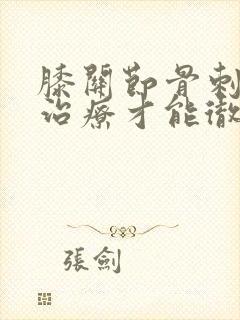 膝關節骨刺
治療才能徹
張劍